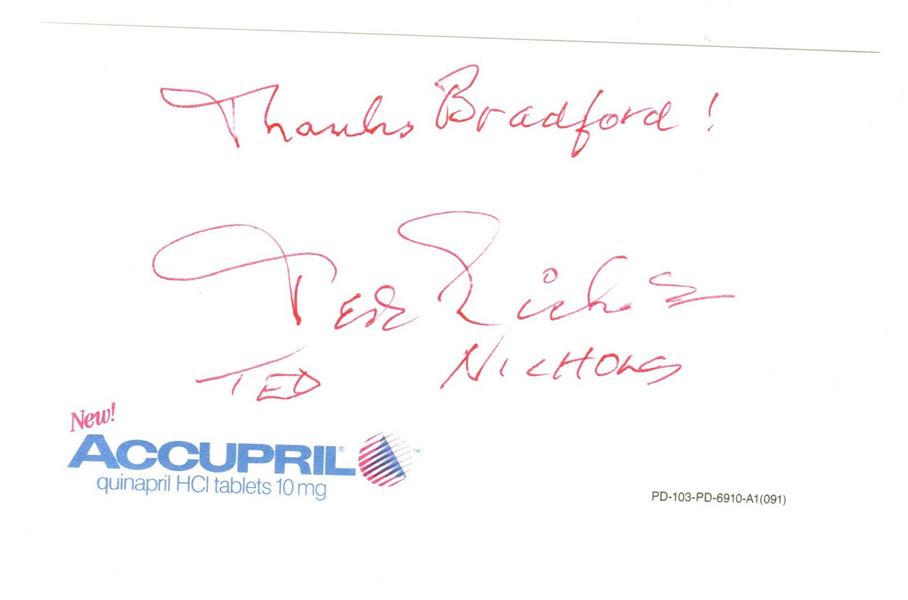 Thanks Bradford!
Ted Nichols
TED NICHOLS
New!
ACCUPRIL®™
quinapril HCl tablets 10 mg
PD-103-PD-6910-A1(091)